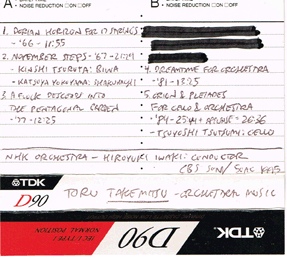 A
• NOISE REDUCTION □ON □OFF
B
• NOISE REDUCTION □ON □OFF
1. DORIAN HORIZON FOR 17 STRINGS
- '66 - 11:55
2. NOVEMBER STEPS - '67 - 21:14
- KINSHI TSURUTA: BIWA
- KATSUYA YOKOYAMA: SHAKUHACHI
3. A FLOCK DESCENDS INTO
THE PENTAGONAL GARDEN
- '77 - 12:25
4. DREAMTIME FOR ORCHESTRA
- '81 - 13:25
5. ORION & PLEIADES
FOR CELLO & ORCHESTRA
- '84 - 26:26
- TSUYOSHI TSUTSUMI: CELLO
NHK ORCHESTRA - HIROYUKI IWAKI: CONDUCTOR
CBS SONY
TDK
D90
IEC I / TYPE I
NORMAL POSITION
TORU TAKEMITSU - ORCHESTRAL MUSIC
D90
TDK